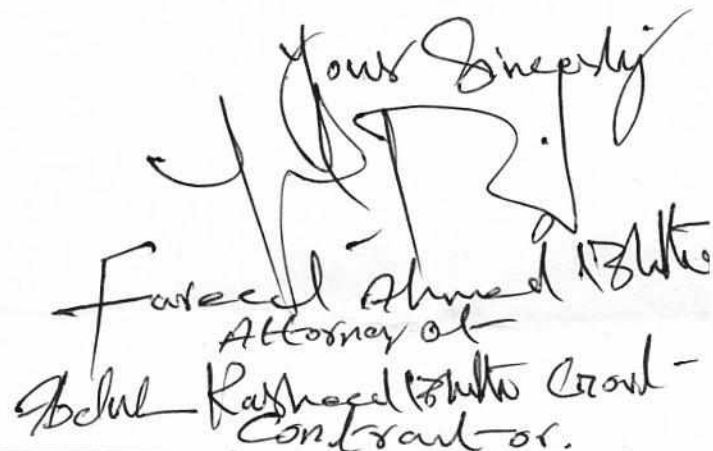 Yours Sincerely
Fareed Ahmed Bhutto
Attorney of
Abdul Rasheed Bhutto Govt-
Contractor.